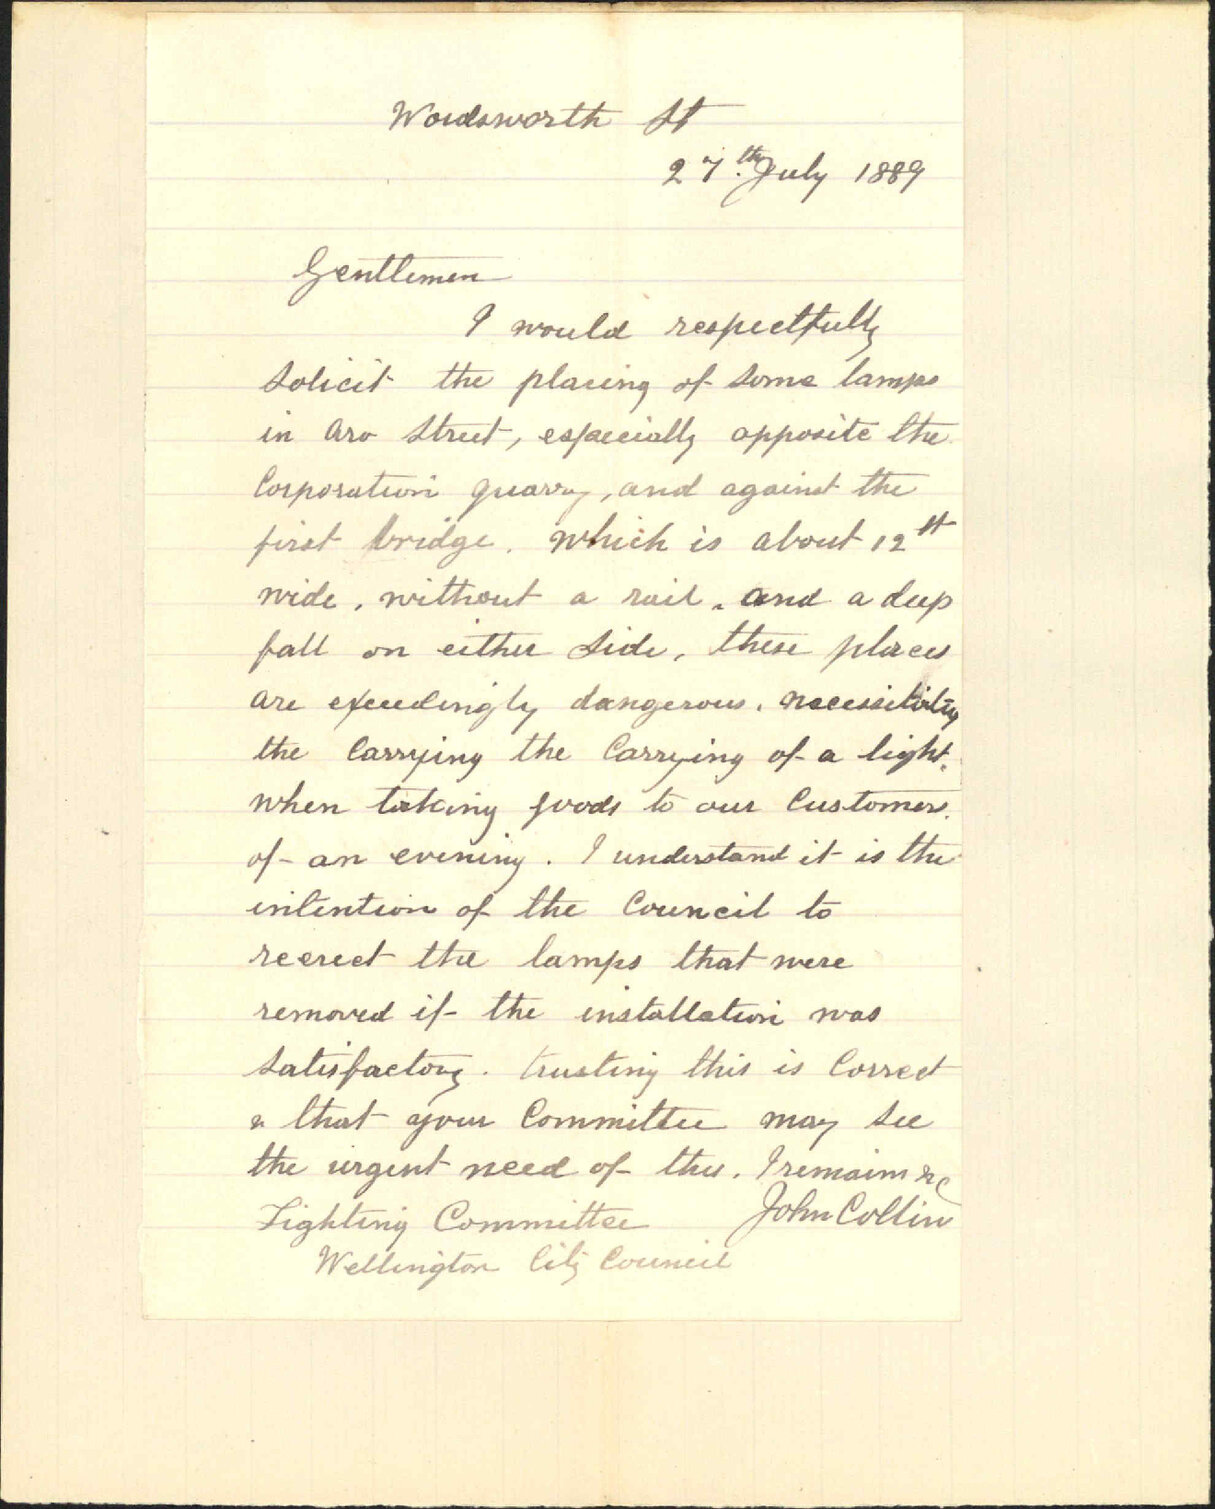 Wordsworth St
27th July 1889
Gentlemen
I would respectfully
solicit the placing of some lamps
in Aro Street, especially opposite the
Corporation quarry, and against the
first bridge. which is about 12 ft
wide, without a rail, and a deep
fall on either side, these places
are exceedingly dangerous, necessitating
the carrying the carrying of a light,
when taking goods to our customers.
of an evening. I understand it is the
intention of the Council to
reerect the lamps that were
removed if the installation was
satisfactory. trusting this is correct
& that your Committee may see
the urgent need of this. I remain &c
John Collin
Lighting Committee
Wellington City Council